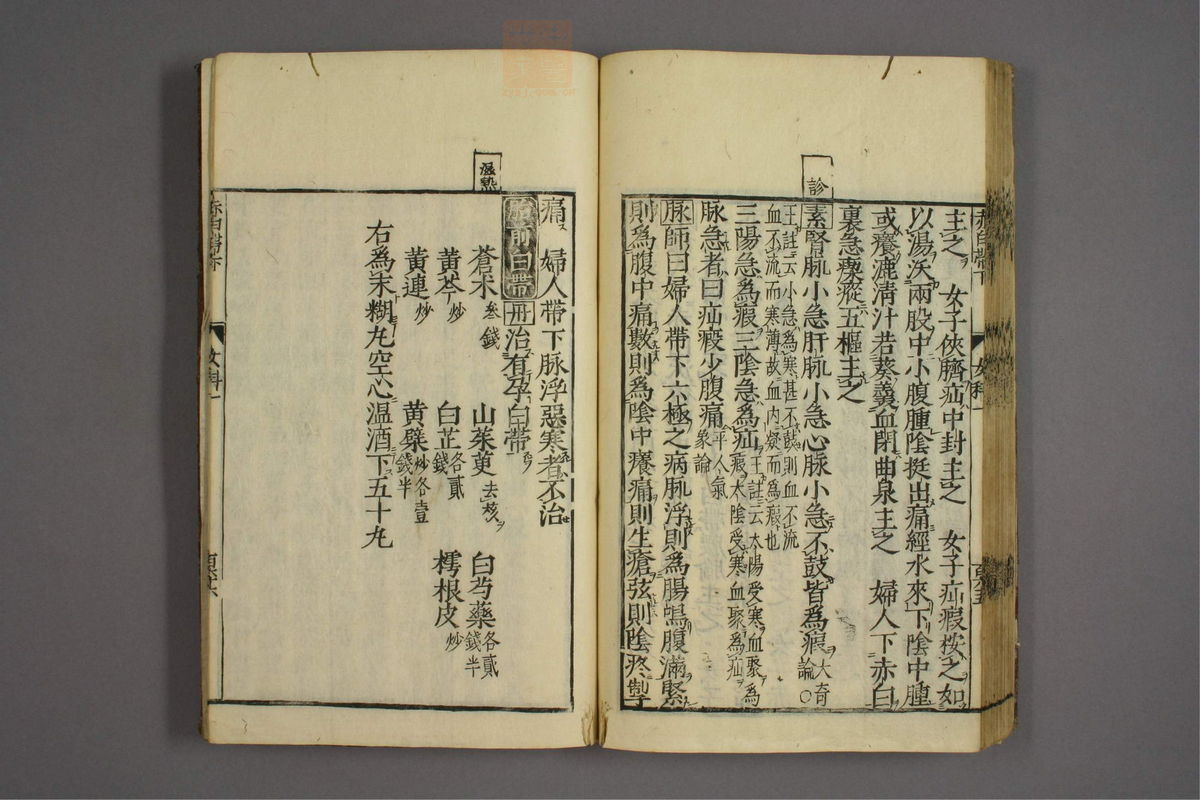 赤白帶下
女科一
主之　女子俠臍疝中封主之　女子疝瘕桉之如
以湯沃兩股中小腹腫陰挺出痛經水來下陰中腫
或癢漉清汁若葵羹血閉曲泉主之　婦人下赤白
裏急瘛瘲五樞主之
診
素 腎脉小急肝脉小急心脉小急不鼓皆爲瘕 大奇論 〇
王註云小急爲寒甚不鼓則血不流
血不流而寒薄故血内凝而爲瘕也
三陽急爲瘕三陰急爲疝 王註云太陽受寒血聚爲瘕太陰受寒血聚爲疝
脉急者曰疝瘕少腹痛 平人氣象論
脉 師曰婦人帶下六極之病脉浮則爲腸鳴腹滿緊
則爲腹中痛數則爲陰中癢痛則生瘡弦則陰疼掣
痛　婦人帶下脉浮惡寒者不治
濕熱
胎前白帶 丹 治有孕白帶
蒼朮 叁錢　山茱萸 去核　白芍藥 各貳錢半
黄芩 炒　白芷 各貳錢　樗根皮 炒
黄連 炒　黄檗 炒各壹錢半
右爲末糊丸空心温酒下五十丸
女科一